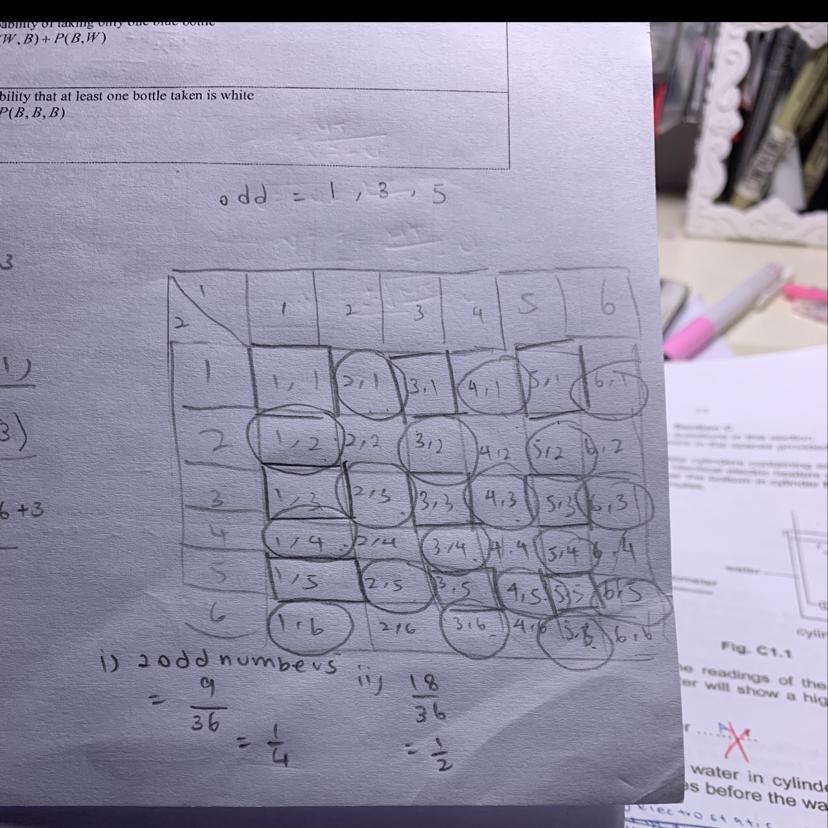 ability of taking only one blue bottle
(W, B) + P(B, W)
bility that at least one bottle taken is white
P(B, B, B)
odd = 1, 3, 5
3
1)
3)
6 + 3
1
2
1 2 3 4 5 6
1 1, 1 2, 1 3, 1 4, 1 5, 1 6, 1
2 1, 2 2, 2 3, 2 4, 2 5, 2 6, 2
3 1, 3 2, 3 3, 3 4, 3 5, 3 6, 3
4 1, 4 2, 4 3, 4 4, 4 5, 4 6, 4
5 1, 5 2, 5 3, 5 4, 5 5, 5 6, 5
6 1, 6 2, 6 3, 6 4, 6 5, 6 6, 6
i) 2 odd numbers
= 9/36
= 1/4
ii) 18/36
= 1/2
water
cylin
Fig. C1.1
e readings of the
er will show a hig
r
water in cylinde
s before the wa